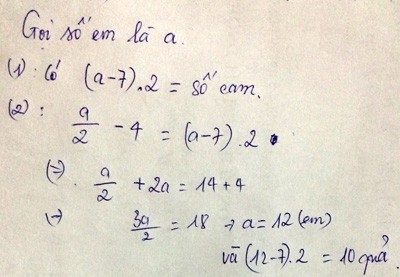 Gọi số em là a.
(1): Có (a-7).2 = số cam.
(2): a/2 - 4 = (a-7).2
(=) a/2 + 2a = 14+4
(-) 3a/2 = 18 → a = 12 (em)
và (12-7).2 = 10 quả